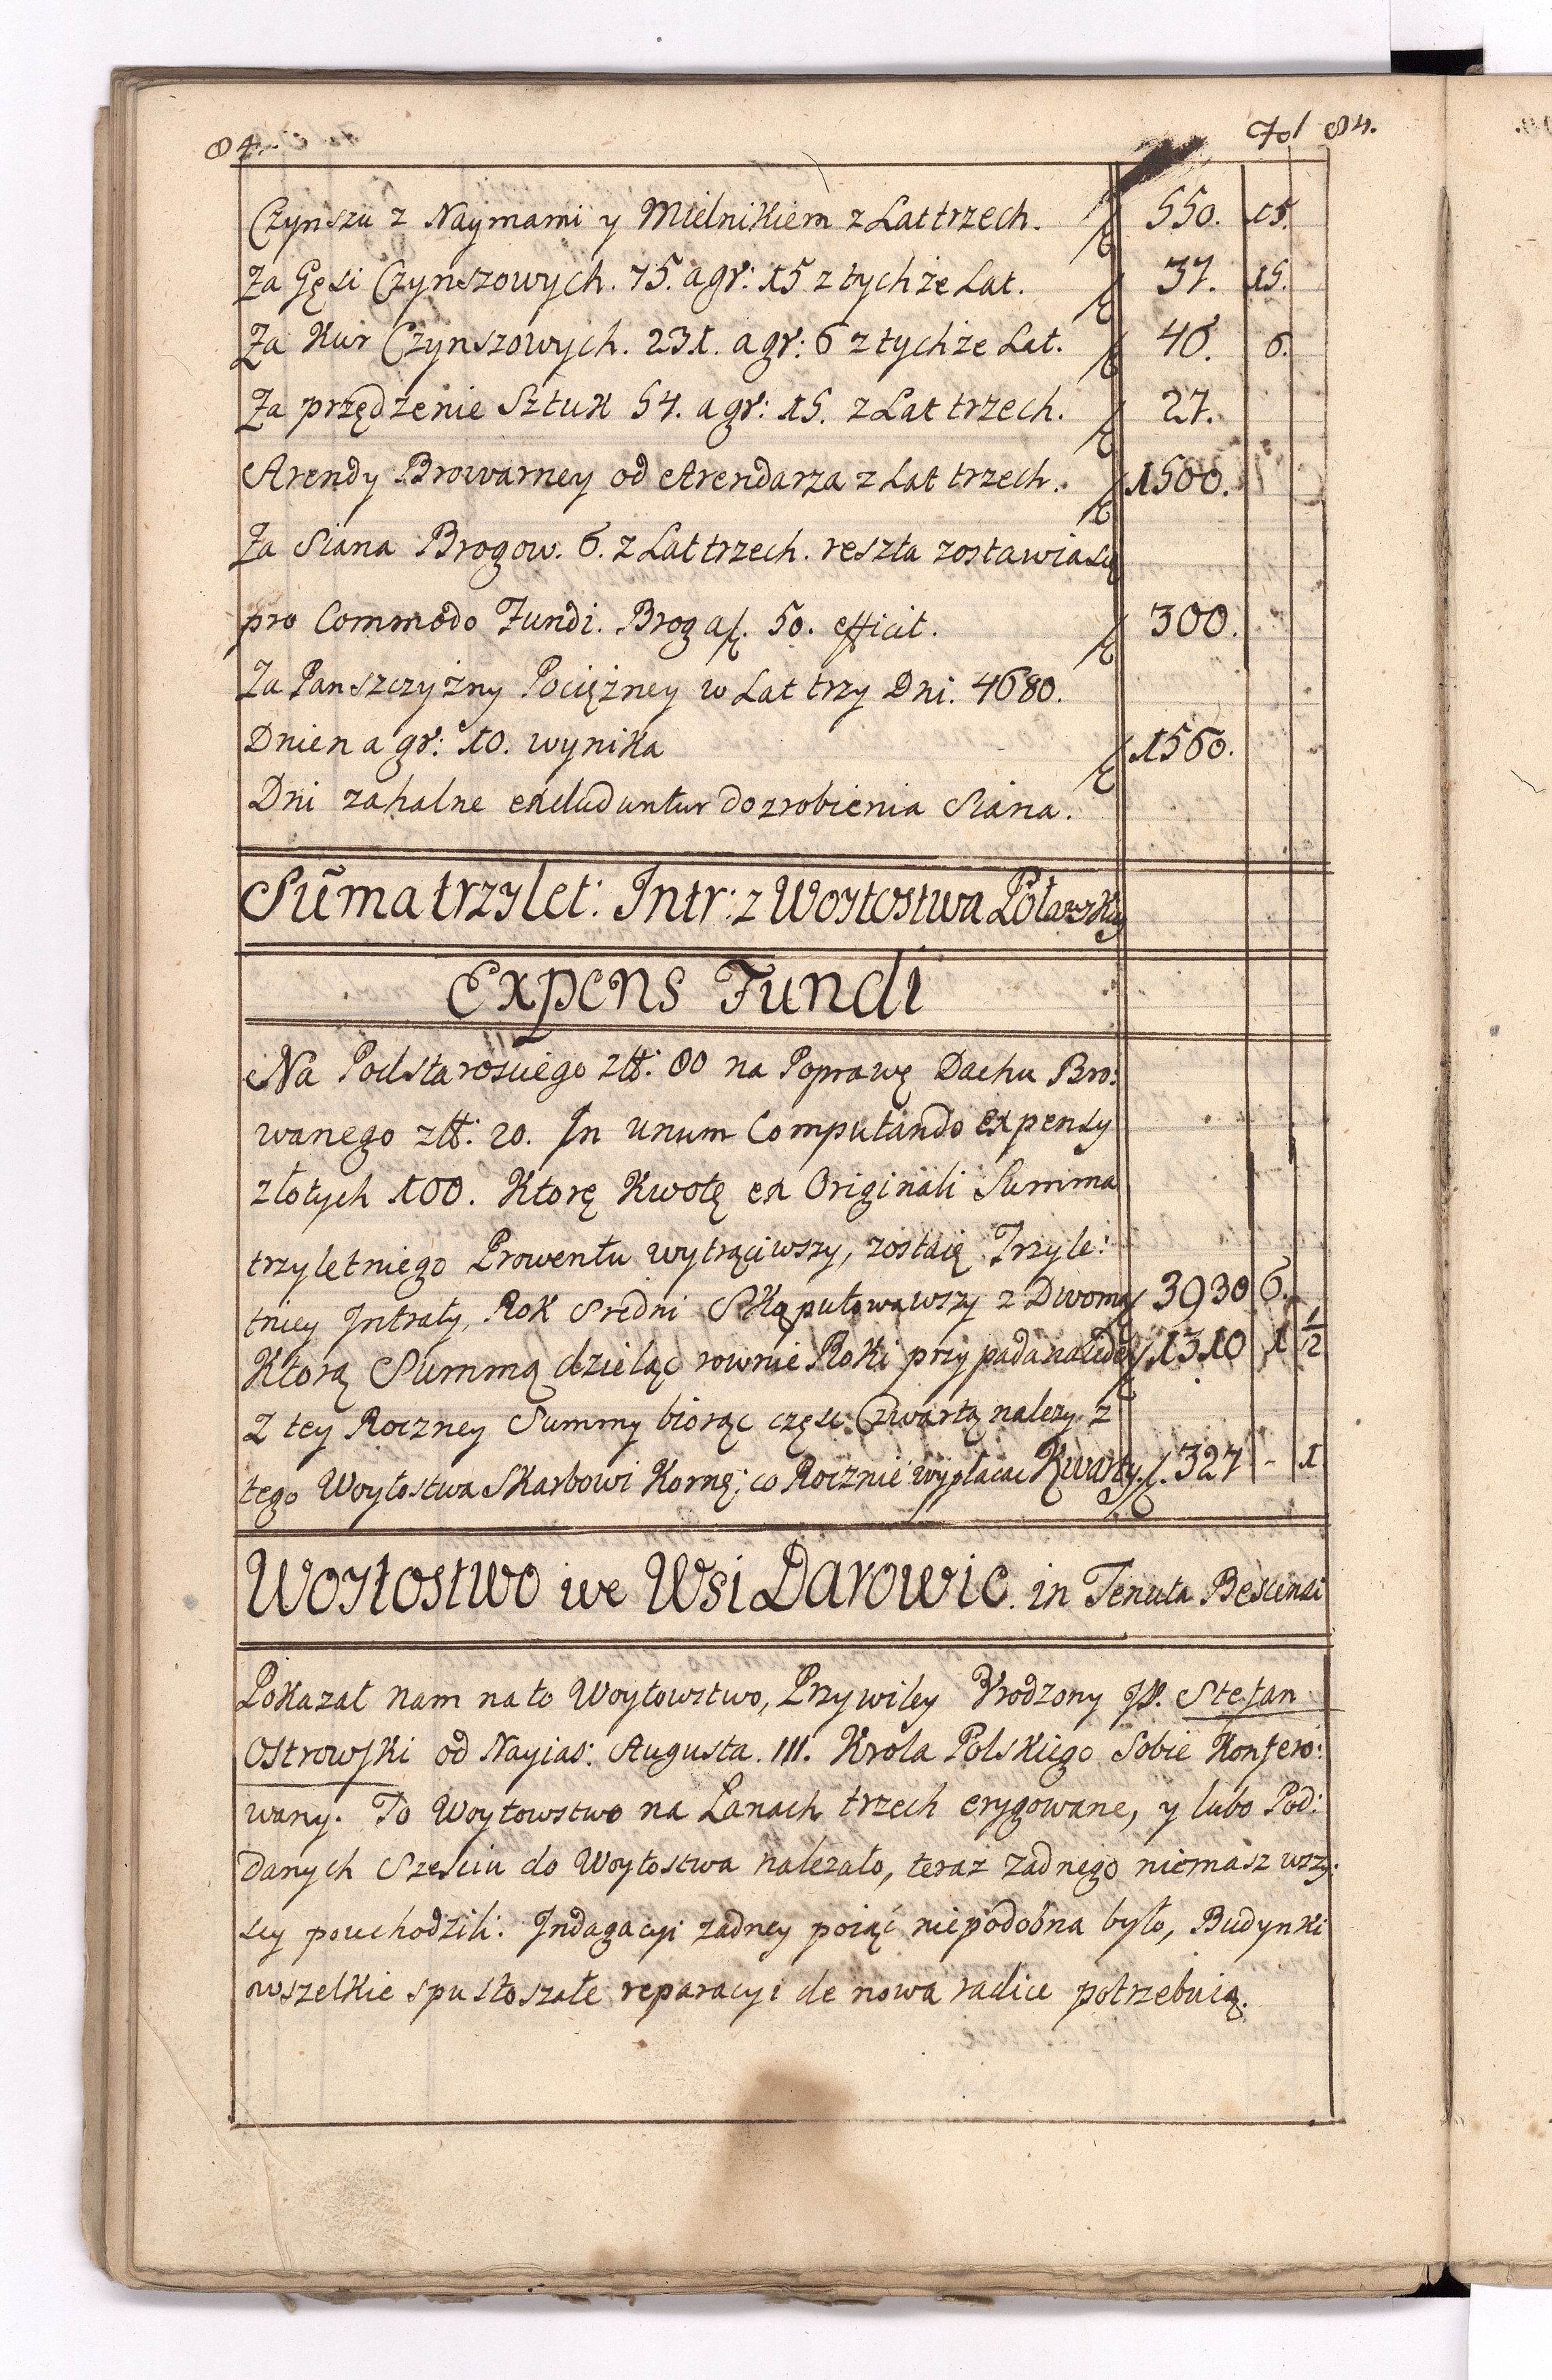 84. Fol 84.
Czynszu z Naymami y Mielnikiem z Lat trzech. 550. 15.
Za Gęsi Czynszowych. 75. a gr: 15 z tychże Lat. 37. 15.
Za Kur Czynszowych. 231. a gr: 6 z tychże Lat. 46. 6.
Za przędzenie Sztuk 54. a gr: 15. z Lat trzech. 27.
Arendy Browarney od Arendarza z Lat trzech. 1500.
Za Siana Brogow. 6. z Lat trzech. reszta zostawia się
pro Commodo Fundi. Brog a f. 50. efficit. 300.
Za Panszczyzny Pociężney w Lat trzy Dni. 4680.
Dnien a gr: 10. wynika 1560.
Dni zahalne excluduntur do zrobienia Siana.
Sum̄a trzylet: Intr: z Woytostwa
Expens Fundi
Na Podstarosciego złł: 80 na Poprawę Dachu Bro:
wanego złł: 20. In unum Computando Expensy
złotych 100. Ktorę Kwotę ex Originali Summa
trzyletniego Prowentu wytrąciwszy, zostaię Trzyle:
tniey Intraty, Rok Sredni Skąputowawszy z Dwoma 3930 6.
Ktorą Summą dzieląc rownie Roki przypada na 1310 1 1/2
Z tey Roczney Summy biorąc częsc Czwartą nalezy z
tego Woytostwa Skarbowi Kornę: co Rocznie wypłacac Kwarty f. 327 - 1
Woytostwo we Wsi Darowic. in Tenuta
Pokazał nam na to Woytowstwo, Przywiley Vrodzony JP. Stefan
Ostrowski od Nayias: Augusta. III. Krola Polskiego Sobie Konfero:
wany. To Woytowstwo na Lanach trzech erygowane, y lubo Pod:
danych Szesciu do Woytostwa nalezało, teraz zadnego niemasz wszy:
scy pouchodzili. Indagacyi zadney poiąć niepodobna było, Budynki
wszelkie spustoszałe reparacyi de nowa radice potrzebuią.